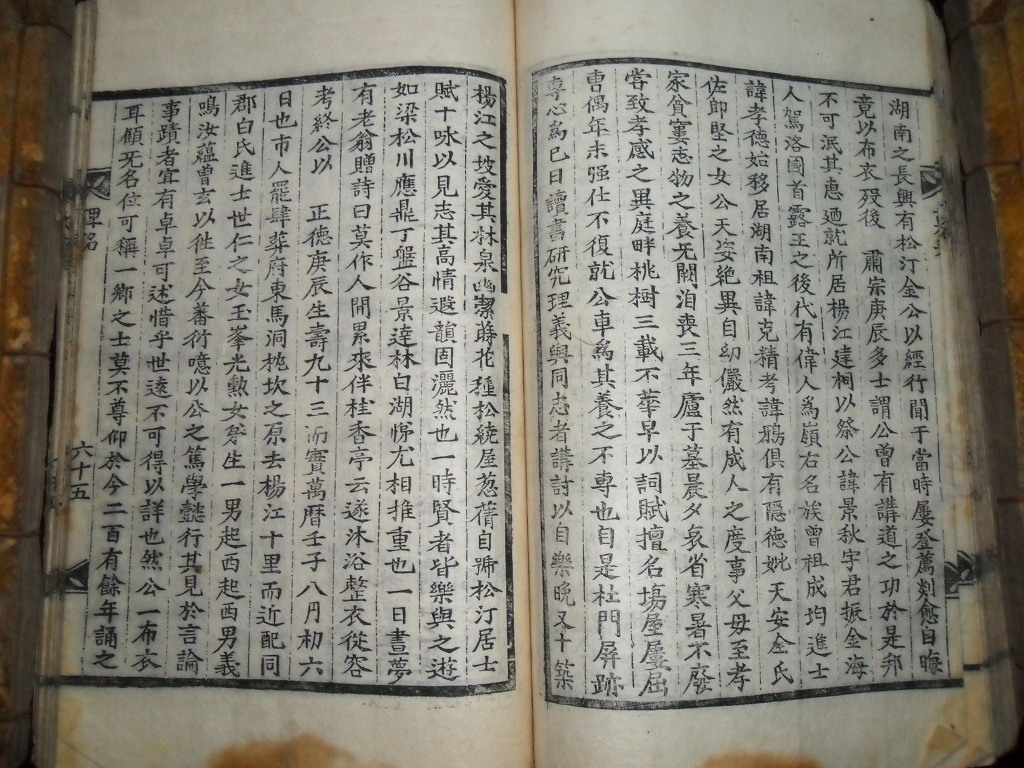 湖南之長興有松汀金公以經行聞于當時屢登薦剡愈自晦
竟以布衣歿後 肅宗庚辰多士謂公曾有講道之功於是邦
不可泯其惠廼就所居楊江建祠以祭公諱景秋字君振金海
人駕洛國首露王之後代有偉人爲嶺右名族曾祖成均進士
諱孝德始移居湖南祖諱克精考諱鴉俱有隠徳妣天安全氏
佐郎堅之女公天姿絶異自幼儼然有成人之度事父母至孝
家貧窶志物之養旡闕洎喪三年廬于墓晨夕哀省寒暑不廢
嘗致孝感之異庭畔桃樹三載不華早以詞賦擅名場屋屢屈
曹偶年未强仕不復就公車爲其養之不專也自是杜門屏跡
專心爲己日讀書研究理義與同志者講討以自樂晩又卜築
楊江之坡愛其林泉幽潔蒔花種松繞屋葱蒨自號松汀居士
賦十咏以見志其高情遐韻固灑然也一時賢者皆樂與之遊
如梁松川應鼎丁盤谷景達林白湖悌尤相推重也一日晝夢
有老翁贈詩曰莫作人間累來伴桂香亭云遂沐浴整衣從容
考終公以 正德庚辰生壽九十三而實萬暦壬子八月初六
日也市人罷肆葬府東馬洞桃坎之原去楊江十里而近配同
郡白氏進士世仁之女玉峯光勲女兄生一男起西起西男義
鳴汝蘊曾玄以徃至今蕃衍噫以公之篤學懿行其見於言論
事蹟者宜有卓卓可述惜乎世遠不可得以詳也然公一布衣
耳顧旡名位可穪一鄉之士莫不尊仰於今二百有餘年誦之
碑銘
六十五